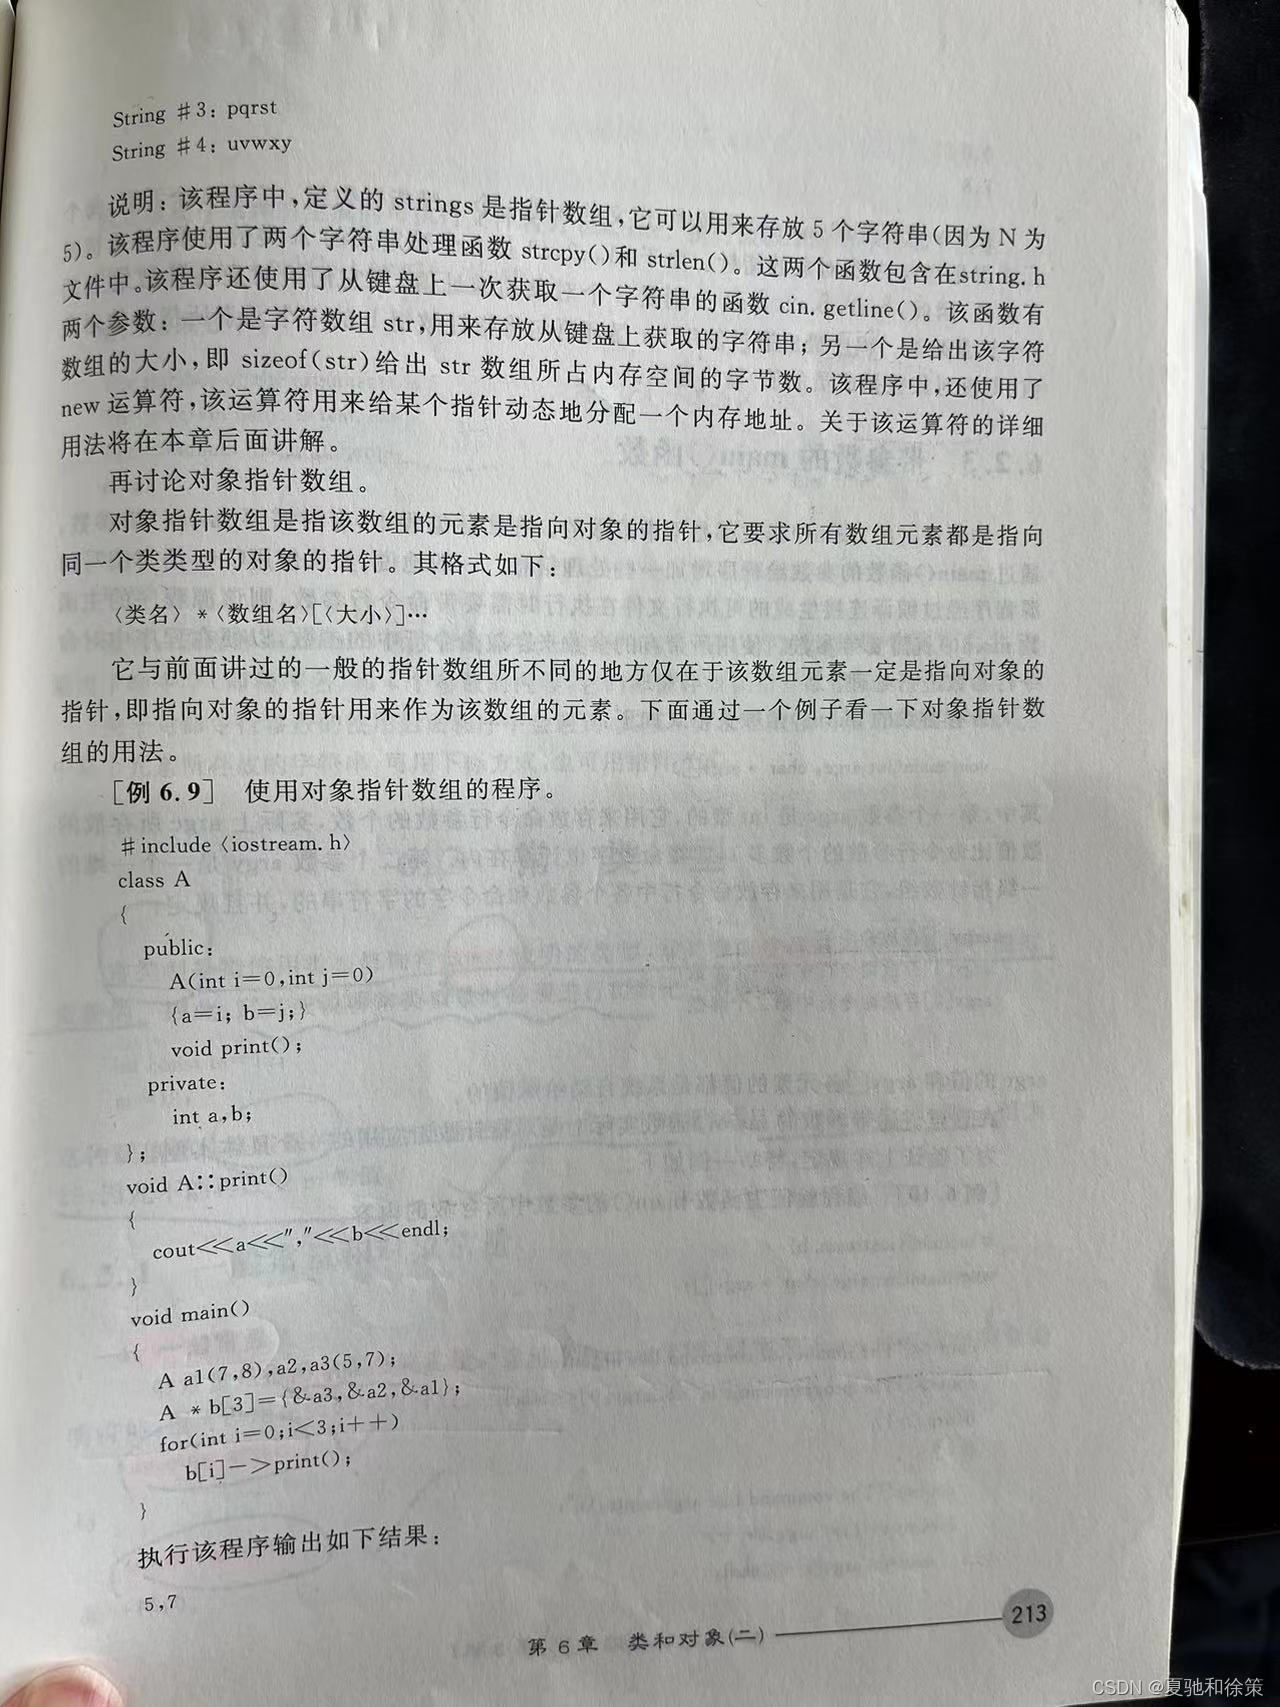 String #3: pqrst
String #4: uvwxy
说明：该程序中，定义的 strings 是指针数组，它可以用来存放 5 个字符串(因为 N 为
5)。该程序使用了两个字符串处理函数 strcpy()和 strlen()。这两个函数包含在string.h
文件中。该程序还使用了从键盘上一次获取一个字符串的函数 cin.getline()。该函数有
两个参数：一个是字符数组 str，用来存放从键盘上获取的字符串；另一个是给出该字符
数组的大小，即 sizeof(str)给出 str 数组所占内存空间的字节数。该程序中，还使用了
new 运算符，该运算符用来给某个指针动态地分配一个内存地址。关于该运算符的详细
用法将在本章后面讲解。
再讨论对象指针数组。
对象指针数组是指该数组的元素是指向对象的指针，它要求所有数组元素都是指向
同一个类类型的对象的指针。其格式如下：
〈类名〉*〈数组名〉[〈大小〉]…
它与前面讲过的一般的指针数组所不同的地方仅在于该数组元素一定是指向对象的
指针，即指向对象的指针用来作为该数组的元素。下面通过一个例子看一下对象指针数
组的用法。
[例 6.9] 使用对象指针数组的程序。
#include〈iostream.h〉
class A
{
public:
A(int i=0,int j=0)
{a=i; b=j;}
void print();
private:
int a,b;
};
void A::print()
{
cout<<a<<","<<b<<endl;
}
void main()
{
A a1(7,8),a2,a3(5,7);
A *b[3]={&a3,&a2,&a1};
for(int i=0;i<3;i++)
b[i]->print();
}
执行该程序输出如下结果：
5,7
第 6 章 类和对象(二) 213
CSDN @夏驰和徐策